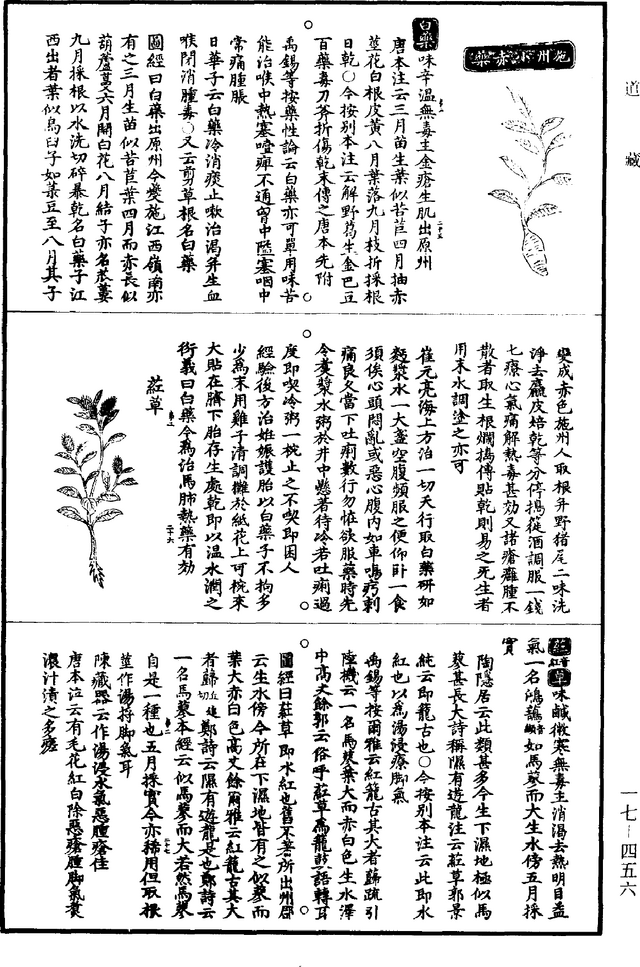 道藏
施州小赤藥
白藥
味辛溫無毒主金瘡生肌出原州
唐本注云三月苗生葉似苦苣四月抽赤
莖花白根皮黃八月葉落九月枝折採根
日乾○今按別本注云解野葛生金巴豆
百藥毒刀斧折傷乾末傅之唐本先附
禹錫等按藥性論云白藥亦可單用味苦
能治喉中熱塞噎痺不通胷中隘塞咽中
常痛腫脹
日華子云白藥冷消痰止嗽治渴并生血
喉閉消腫毒○又云剪草根名白藥
圖經曰白藥出原州今夔施江西嶺南亦
有之三月生苗似苦苣葉四月而赤長似
葫蘆蔓六月開白花八月結子亦名苽蔞
九月採根以水洗切碎暴乾名白藥子江
西出者葉似烏臼子如菉豆至八月其子
變成赤色施州人取根并野猪尾二味洗
淨去麤皮焙乾等分停搗篩酒調服一錢
匕療心氣痛解熱毒甚効又諸瘡癰腫不
散者取生根爛搗傅貼乾則易之无生者
用末水調塗之亦可
崔元亮海上方治一切天行取白藥研如
麵漿水一大盞空腹頓服之便仰臥一食
須俟心頭悶亂或惡心腹內如車鳴疞刺
痛良久當下吐痢數行勿恠欲服藥時先
令煑漿水粥於井中懸著待冷若吐痢過
度即喫冷粥一椀止之不喫即困人
經驗後方治姙娠護胎以白藥子不拘多
少爲末用雞子清調攤於紙花上可椀來
大貼在臍下胎存生處乾即以温水潤之
衍義曰白藥今爲治馬肺熱藥有効
二十六
葒草
葒音紅草
味鹹微寒無毒主消渴去熱明目益
氣一名鴻䕘音纈如馬蓼而大生水傍五月採
實
陶隱居云此類甚多今生下濕地極似馬
蓼甚長大詩稱隰有遊龍注云葒草郭景
純云即蘢古也○今按別本注云此即水
紅也以爲湯浸療脚氣
禹錫等按爾雅云紅蘢古其大者蘬疏引
陸機云一名馬蓼葉大而赤白色生水澤
中高丈餘郭云俗呼葒草爲蘢鼓語轉耳
圖經曰葒草即水紅也舊不著所出州郡
云生水傍今所在下濕地皆有之似蓼而
葉大赤白色高丈餘爾雅云紅蘢古其大
者蘬切近違鄭詩云隰有遊龍是也鄭詩云
一名馬蓼本經云似馬蓼而大若然馬蓼
自是一種也五月採實今亦稀用但取根
莖作湯捋脚氣耳
陳藏器云作湯浸水氣惡腫瘡佳
唐本注云有毛花紅白除惡瘡腫脚氣煑
濃汁漬之多瘥
一七-四五六